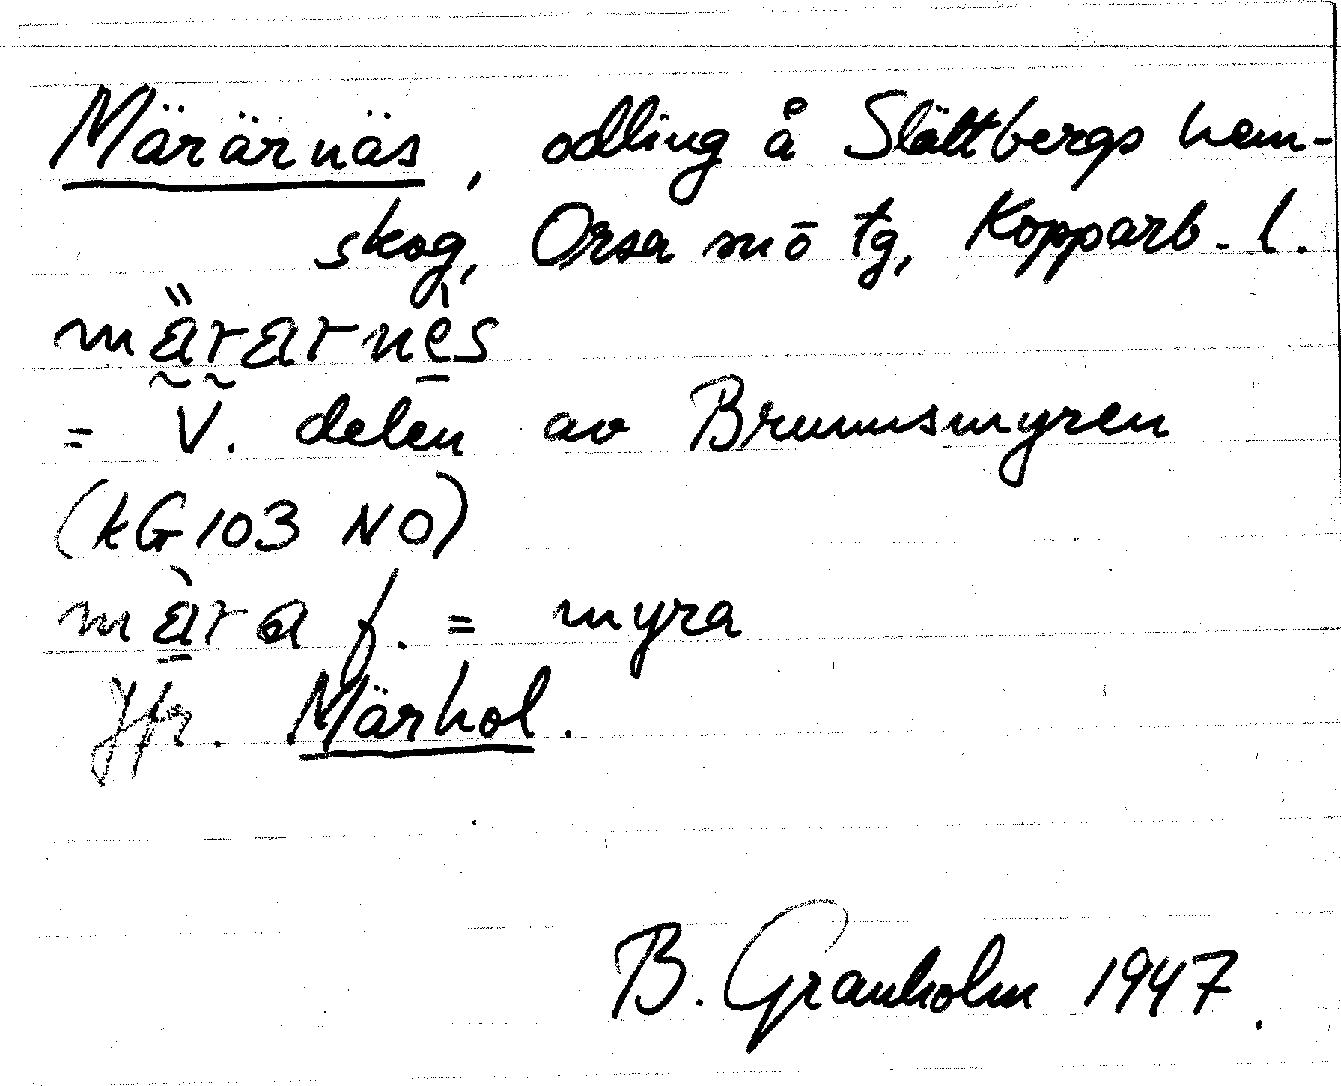 Märärnäs, odling å Slättbergs hem-
skog, Orsa sn ö tg, Kopparb. l.
märarnès
= V. delen av Brunnsmyren
(kG 103 NO)
mära f. = myra
Jfr. Märhol.
B. Granholm 1947.